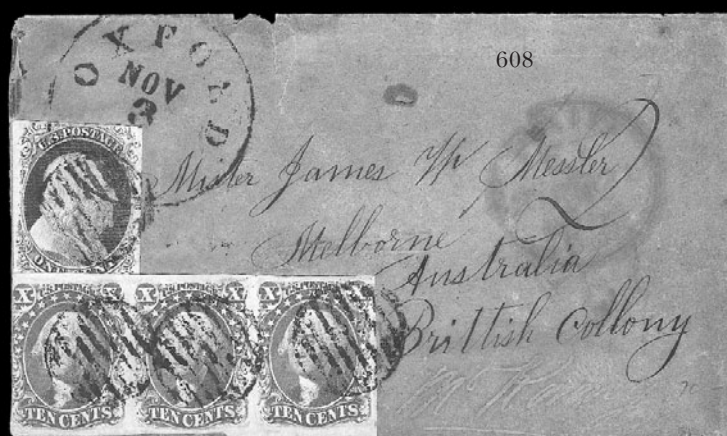 OXFORD
NOV
3
608
U.S. POSTAGE
ONE CENT
Mister James W Messler
Melborne
Australia
Brittish Collony
X X X X X X
TEN CENTS TEN CENTS TEN CENTS